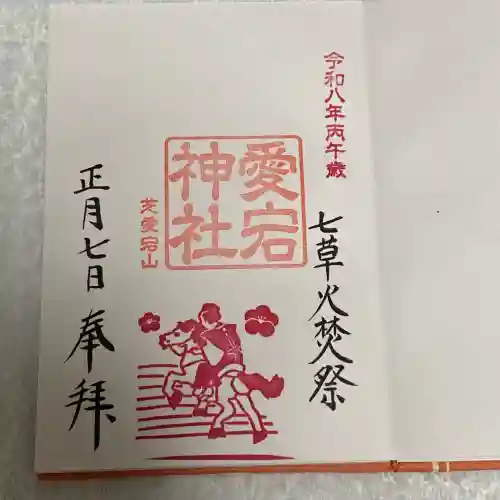 令和八年丙午歳
七草火焚祭
愛宕
神社
芝愛宕山
正月七日 奉拝